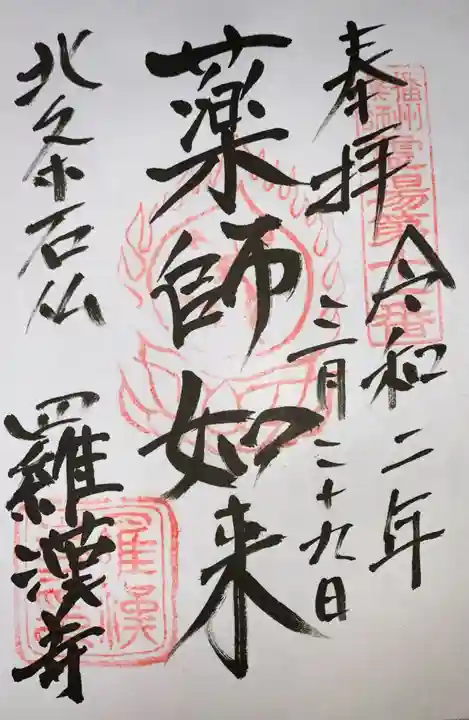 奉拝 令和二年
三月二十九日
薬師如来
北条石仏
羅漢寺
播州薬師霊場第十二番